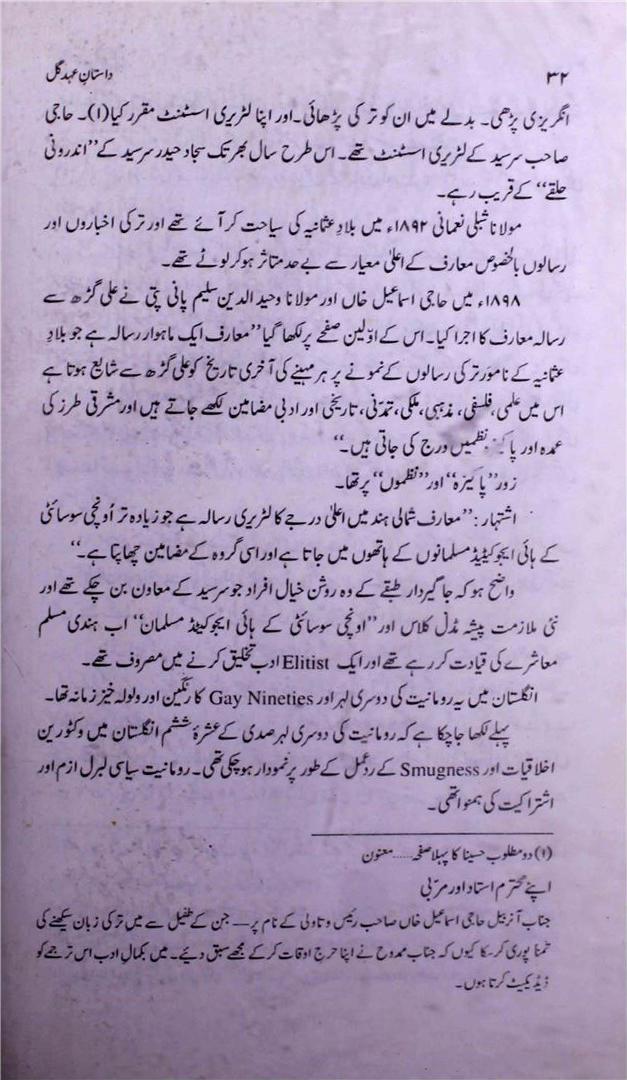 ۳۲
داستانِ عہدِ گل
انگریزی پڑھی۔ بدلے میں ان کو ترکی پڑھائی۔ اور اپنا لٹریری اسسٹنٹ مقرر کیا(۱)۔ حاجی
صاحب سرسید کے لٹریری اسسٹنٹ تھے۔ اس طرح سال بھر تک سجاد حیدر سرسید کے ’’اندرونی
حلقے‘‘ کے قریب رہے۔
مولانا شبلی نعمانی ۱۸۹۲ء میں بلادِ عثمانیہ کی سیاحت کر آئے تھے اور ترکی اخباروں اور
رسالوں بالخصوص معارف کے اعلیٰ معیار سے بے حد متاثر ہو کر لوٹے تھے۔
۱۸۹۸ء میں حاجی اسماعیل خاں اور مولانا وحید الدین سلیم پانی پتی نے علی گڑھ سے
رسالہ معارف کا اجرا کیا۔ اس کے اوّلین صفحے پر لکھا گیا ’’معارف ایک ماہوار رسالہ ہے جو بلادِ
عثمانیہ کے نامور ترکی رسالوں کے نمونے پر ہر مہینے کی آخری تاریخ کو علی گڑھ سے شایع ہوتا ہے
اس میں علمی، فلسفی، مذہبی، ملکی، تمدنی، تاریخی اور ادبی مضامین لکھے جاتے ہیں اور مشرقی طرز کی
عمدہ اور پاکیزہ نظمیں درج کی جاتی ہیں۔‘‘
زور ’’پاکیزہ‘‘ اور ’’نظموں‘‘ پر تھا۔
اشتہار: ’’معارف شمالی ہند میں اعلیٰ درجے کا لٹریری رسالہ ہے جو زیادہ تر اُونچی سوسائٹی
کے ہائی ایجوکیٹیڈ مسلمانوں کے ہاتھوں میں جاتا ہے اور اسی گروہ کے مضامین چھاپتا ہے۔‘‘
واضح ہو کہ جاگیردار طبقے کے وہ روشن خیال افراد جو سرسید کے معاون بن چکے تھے اور
نئی ملازمت پیشہ مڈل کلاس اور ’’اونچی سوسائٹی کے ہائی ایجوکیٹڈ مسلمان‘‘ اب ہندی مسلم
معاشرے کی قیادت کر رہے تھے اور ایک Elitist ادب تخلیق کرنے میں مصروف تھے۔
انگلستان میں یہ رومانیت کی دوسری لہر اور Gay Nineties کا رنگین اور ولولہ خیز زمانہ تھا۔
پہلے لکھا جا چکا ہے کہ رومانیت کی دوسری لہر صدی کے عشرۂ ششم انگلستان میں وکٹورین
اخلاقیات اور Smugness کے ردِ عمل کے طور پر نمودار ہو چکی تھی۔ رومانیت سیاسی لبرل ازم اور
اشتراکیت کی ہمنوا تھی۔
(۱) دو مطلوب حسینا کا پہلا صفحہ...... معنون
اپنے محترم استاد اور مربّی
جناب آنریبل حاجی اسماعیل خاں صاحب رئیس دتاولی کے نام پر — جن کے طفیل سے میں ترکی زبان سیکھنے کی
تمنا پوری کر سکا کیوں کہ جناب ممدوح نے اپنا حرج اوقات کر کے مجھے سبق دیئے۔ میں بکمالِ ادب اس ترجمے کو
ڈیڈیکیٹ کرتا ہوں۔